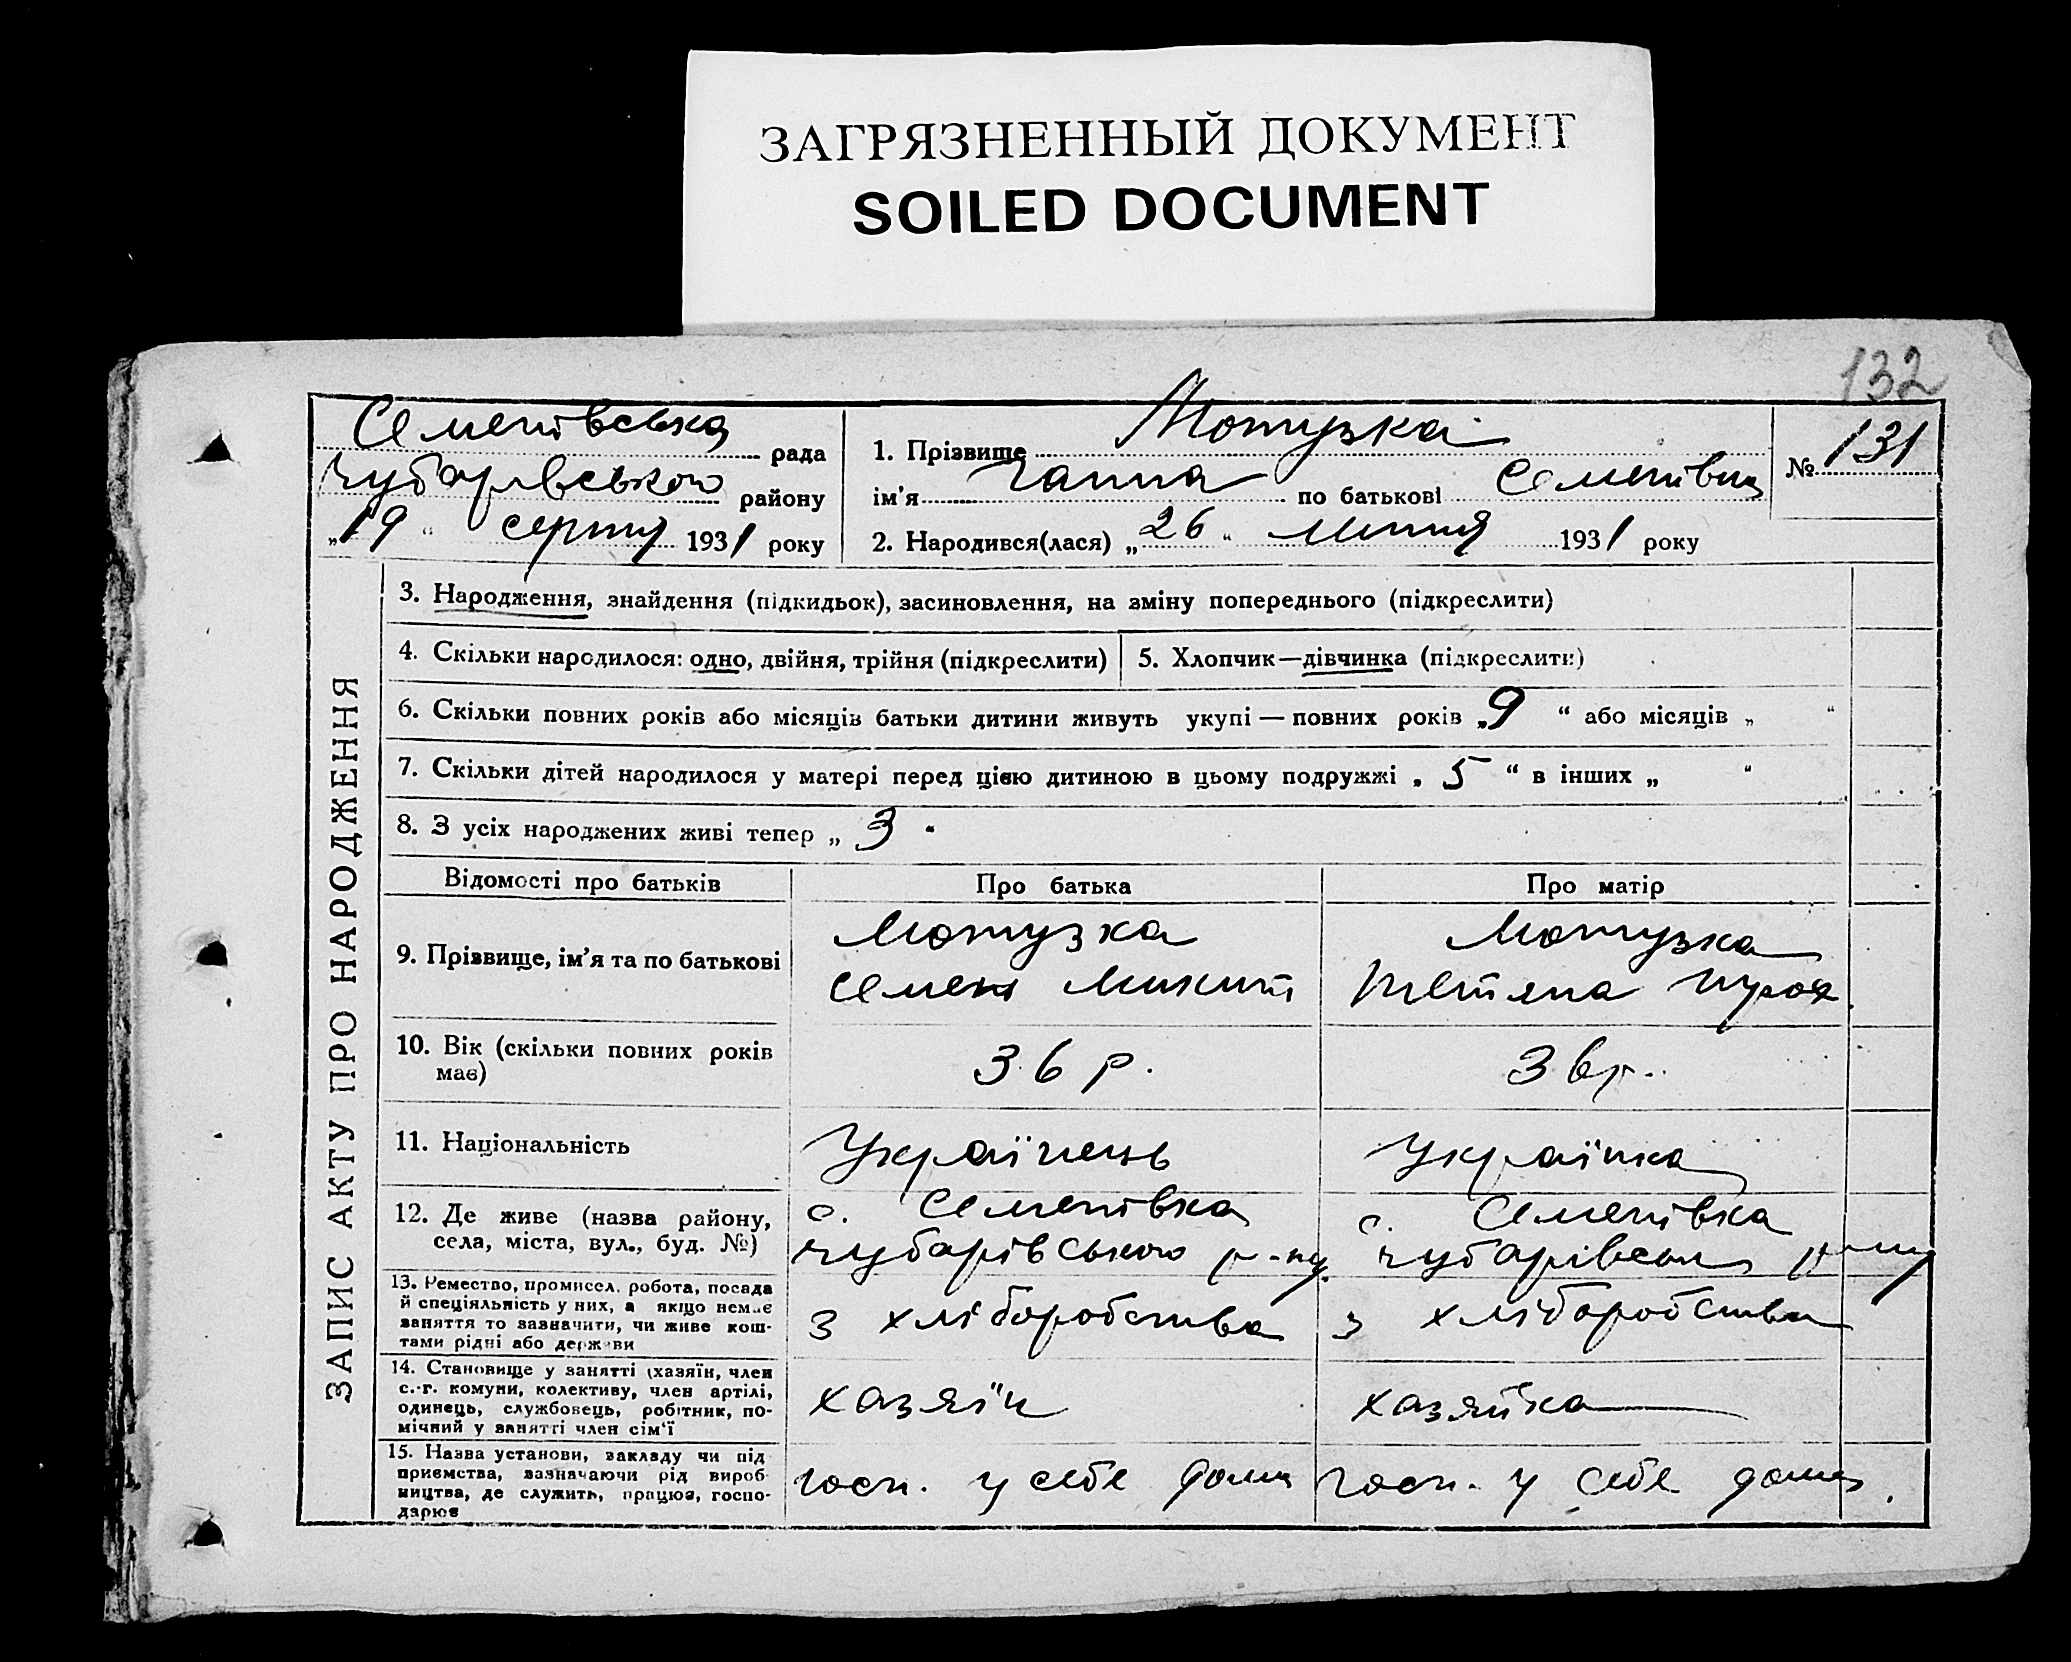 ЗАГРЯЗНЕННЫЙ ДОКУМЕНТ
SOILED DOCUMENT
132
Семенівська рада
Чубарівського району
„19“ серпня 1931 року
1. Прізвище Мотузка
ім'я Ганна по батькові Семенівна
2. Народився(лася) „26“ липня 1931 року
№ 131
ЗАПИС АКТУ ПРО НАРОДЖЕННЯ
3. Народження, знайдення (підкидьок), засиновлення, на зміну попереднього (підкреслити)
4. Скільки народилося: одно, двійня, трійня (підкреслити)
5. Хлопчик—дівчинка (підкреслити)
6. Скільки повних років або місяців батьки дитини живуть укупі — повних років „9“ або місяців „ “
7. Скільки дітей народилося у матері перед цією дитиною в цьому подружжі „ 5 “ в інших „ “
8. З усіх народжених живі тепер „ 3 “
Відомості про батьків
Про батька
Про матір
9. Прізвище, ім'я та по батькові
Мотузка
Семен Микит
Мотузка
Тетяна
10. Вік (скільки повних років
має)
36 р.
36 р.
11. Національність
Українець
Українка
12. Де живе (назва району,
села, міста, вул., буд. №)
с. Семенівка
Чубарівського р-ну
с. Семенівка
Чубарівськ р-ну
13. Ремество, промисел, робота, посада
й спеціяльність у них, а якщо немає
заняття то зазначити, чи живе кош-
тами рідні або держави
з хліборобства
з хліборобства
14. Становище у занятті (хазяїн, член
с.-г. комуни, колективу, член артілі,
одинець, службовець, робітник, по-
мічний у занятті член сім'ї
хазяїн
хазяйка
15. Назва установи, закладу чи під
приємства, зазначаючи рід вироб-
ництва, де служить, працює, госпо-
дарює
госп. у себе дома
госп. у себе дома.